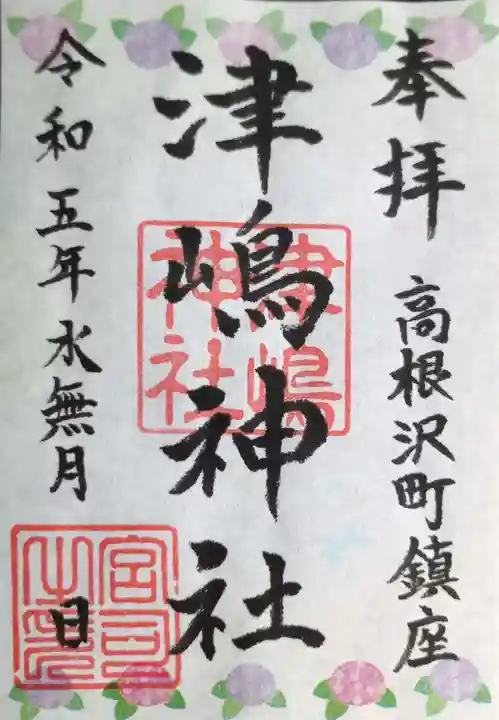 奉拝 高根沢町鎮座
津嶋神社
津嶋神社
令和五年水無月 日
宮司之印